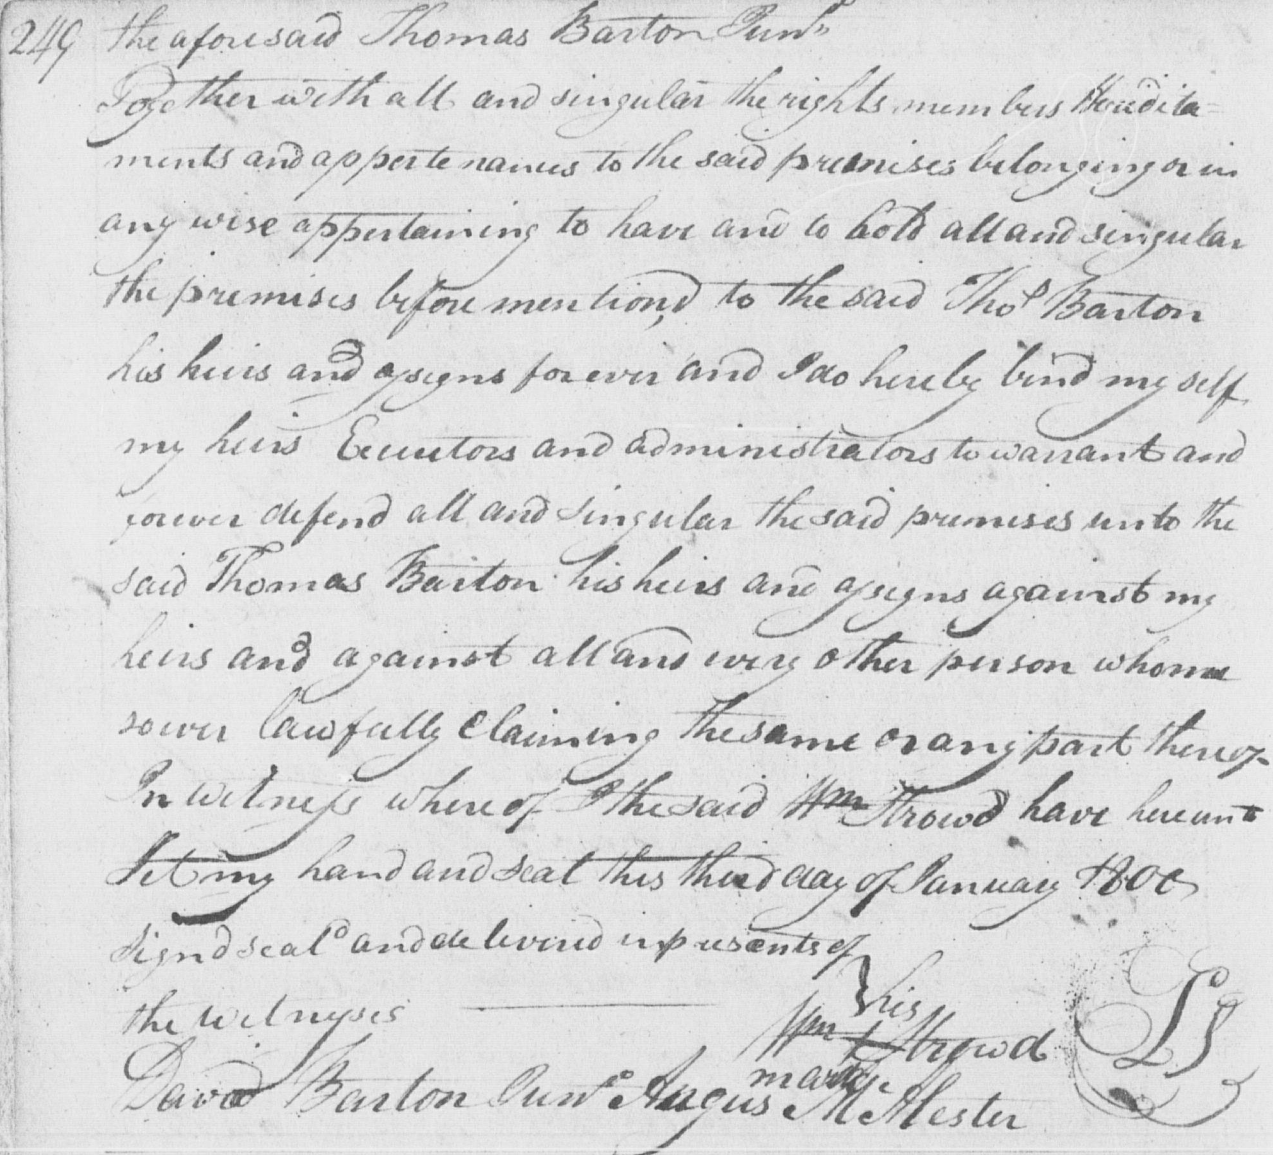 249 the aforesaid Thomas Barton Junr
Together with all and singular the rights members Heredita=
ments and appertenances to the said premises belonging or in
any wise appertaining to have and to hold all and singular
the premises before mention,d to the said Thos Barton
his heirs and assigns forever and I do hereby bind my self
my heirs Executors and administrators to warrant and
forever defend all and singular the said premises unto the
said Thomas Barton his heirs and assigns against my
heirs and against all and every other person whome
soever lawfully Claiming the same or any part thereof
In witness where of I the said Wm Strowd have hereunt
Set my hand and seal this third day of January 1800
Signd seald and delivered in presents of
the witnesses
his
Wm Strowd LS
mark
David Barton Junr Angus McAlester